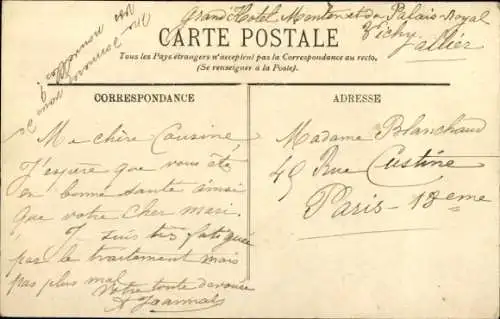 Grand Hotel Montenet du Palais-Royal
Vichy
Allier
CARTE POSTALE
Tous les Pays étrangers n'acceptent pas la Correspondance au recto.
(Se renseigner à la Poste).
CORRESPONDANCE
ADRESSE
Ma chère Cousine
J'espère que vous été
en bonne santé ainsi
que votre cher mari.
Je suis très fatiguée
par le traitement mais
pas plus mal
Votre toute devouée
Madame Blanchaud
49 Rue Custine
Paris-18eme